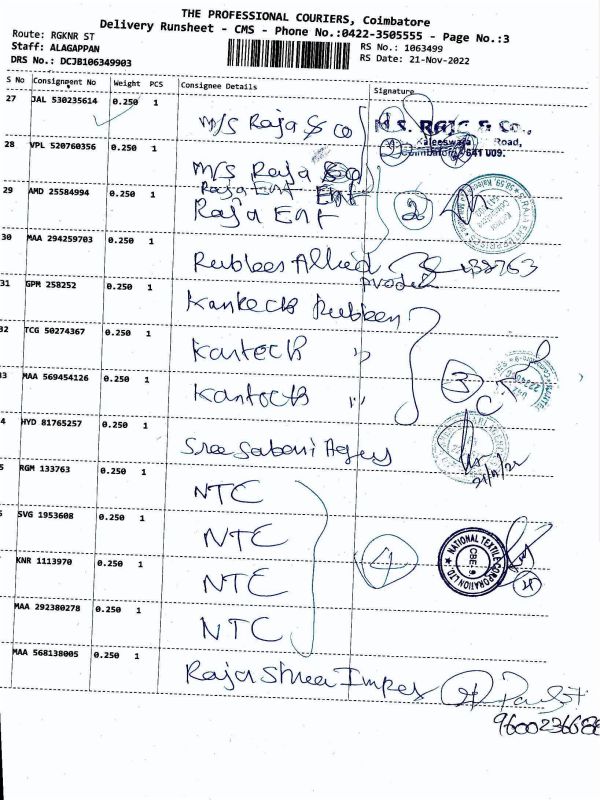 THE PROFESSIONAL COURIERS, Coimbatore
Delivery Runsheet - CMS - Phone No.:0422-3505555 - Page No.:3
Route: RGKNR ST
Staff: ALAGAPPAN
DRS No.: DCJB106349903
RS No.: 1063499
RS Date: 21-Nov-2022
S No Consignment No Weight PCS Consignee Details Signature
27 JAL 530235614 0.250 1 M/S Raja & Co
M.S. RAJA & Co.,
Road,
Coimbatore 641 009.
28 VPL 520760356 0.250 1 M/S Raja
29 AMD 25584994 0.250 1 Raja Ent
Raja Ent 2
30 MAA 294259703 0.250 1 Rubbees Allied
31 GPM 258252 0.250 1
32 TCG 50274367 0.250 1 Kantech "
33 MAA 569454126 0.250 1 "
3
4 HYD 81765257 0.250 1 Sree Sabari
21/11/22
5 RGM 133763 0.250 1 NTC
SVG 1953608 0.250 1 NTC
KNR 1113970 0.250 1 NTC
4
NATIONAL TEXTILE CORPORATION LTD.
CBE-9
MAA 292380278 0.250 1 NTC
MAA 568138005 0.250 1 Raja Shree Impex